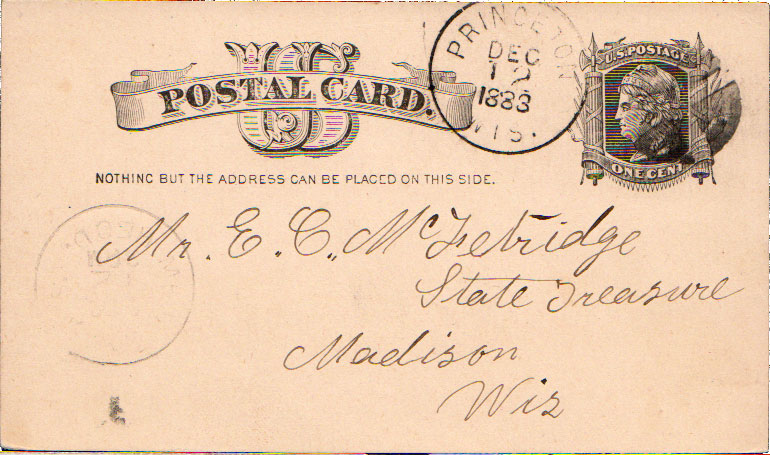 U.S. POSTAGE
ONE CENT
US
POSTAL CARD.
PRINCETON
DEC
1883
WIS.
NOTHING BUT THE ADDRESS CAN BE PLACED ON THIS SIDE.
Mr. E. C. McFetridge
State Treasure
Madison
Wis